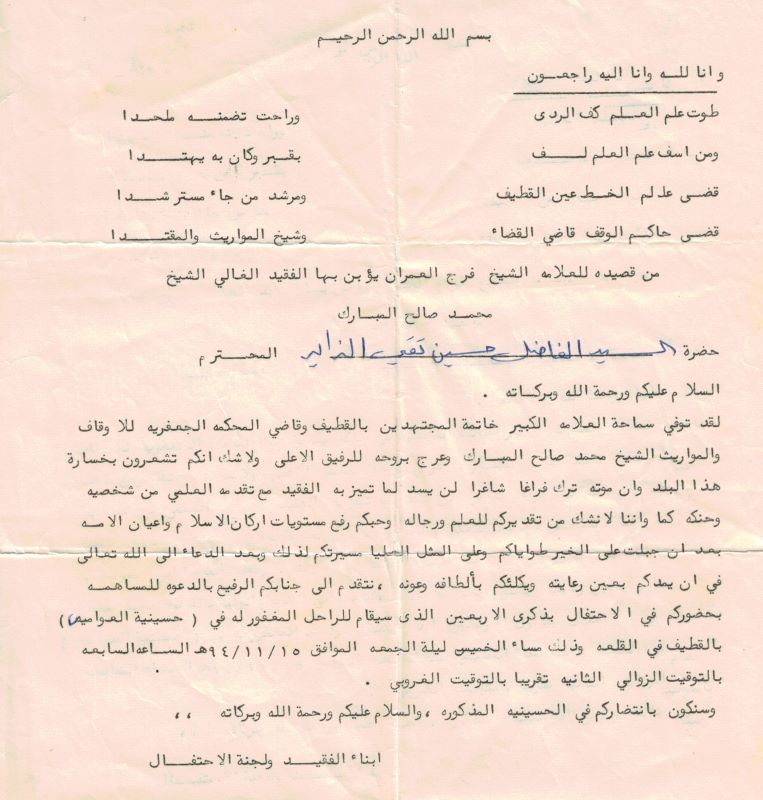 بسم الله الرحمن الرحيم
وانا لله وانا اليه راجعون
طوت علم العلم كف الردى وراحت تضمنه ملحدا
ومن اسف علم العلم لف بقبر وكان به يهتدا
قضى علم الخط عين القطيف ومرشد من جاء مسترشدا
قضى حاكم الوقف قاضي القضاء وشيخ المواريث والمقتدا
من قصيده للعلامه الشيخ فرج العمران يؤبن بها الفقيد الغالي الشيخ
محمد صالح المبارك
حضرة السيد الفاضل حسين تقي الزاير المحترم
السلام عليكم ورحمة الله وبركاته .
لقد توفي سماحة العلامه الكبير خاتمة المجتهدين بالقطيف وقاضي المحكمه الجعفريه للاوقاف
والمواريث الشيخ محمد صالح المبارك وعرج بروحه للرفيق الاعلى ولاشك انكم تشعرون بخسارة
هذا البلد وان موته ترك فراغا شاغرا لن يسد لما تميز به الفقيد مع تقدمه العلمي من شخصيه
وحنكه كما واننا لانشك من تقديركم للعلم ورجاله وحبكم رفع مستويات اركان الاسلام واعيان الامه
بعد ان جبلت على الخير طواياكم وعلى المثل العليا مسيرتكم لذلك وبعد الدعاء الى الله تعالى
في ان يمدكم بعين رعايته ويكلئكم بألطافه وعونه ،نتقدم الى جنابكم الرفيع بالدعوه للمساهمه
بحضوركم في الاحتفال بذكرى الاربعين الذى سيقام للراحل المغفور له في ( حسينية العواميه )
بالقطيف في القلعه وذلك مساء الخميس ليلة الجمعه الموافق ٩٤/١١/١٥هـ الساعه السابعه
بالتوقيت الزوالي الثانيه تقريبا بالتوقيت الغروبي .
وسنكون بانتضاركم في الحسينيه المذكوره ،والسلام عليكم ورحمة الله وبركاته ،،
ابناء الفقيد ولجنة الاحتفال